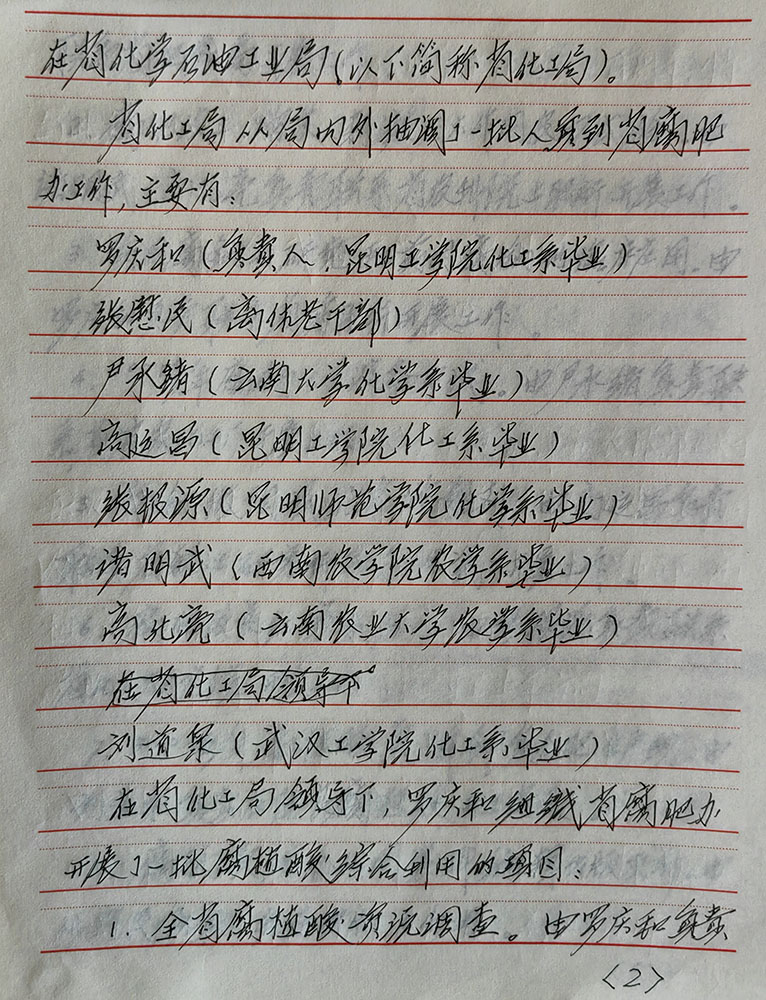 在省化学石油工业局(以下简称省化工局)。
省化工局从局内外抽调了一批人员到省腐肥
办工作,主要有:
罗庆和(负责人,昆明工学院化工系毕业)
张慰民(离休老干部)
尹承绪(云南大学化学系毕业)
高运昌(昆明工学院化工系毕业)
张根源(昆明师范学院化学系毕业)
诸明武(西南农学院农学系毕业)
高北亮(云南农业大学农学系毕业)
在省化工局领导下
刘道泉(武汉工学院化工系毕业)
在省化工局领导下,罗庆和组织省腐肥办
开展了一批腐植酸综合利用的项目:
1. 全省腐植酸资源调查。由罗庆和负责
<2>